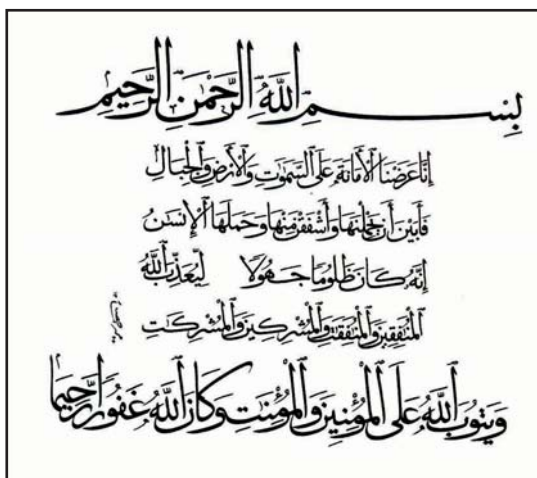 بِسْمِ ٱللَّهِ ٱلرَّحْمَٰنِ ٱلرَّحِيمِ
إِنَّا عَرَضْنَا ٱلْأَمَانَةَ عَلَى ٱلسَّمَٰوَٰتِ وَٱلْأَرْضِ وَٱلْجِبَالِ
فَأَبَيْنَ أَن يَحْمِلْنَهَا وَأَشْفَقْنَ مِنْهَا وَحَمَلَهَا ٱلْإِنسَٰنُ
إِنَّهُۥ كَانَ ظَلُومًا جَهُولًا لِّيُعَذِّبَ ٱللَّهُ
ٱلْمُنَٰفِقِينَ وَٱلْمُنَٰفِقَٰتِ وَٱلْمُشْرِكِينَ وَٱلْمُشْرِكَٰتِ
وَيَتُوبَ ٱللَّهُ عَلَى ٱلْمُؤْمِنِينَ وَٱلْمُؤْمِنَٰتِ وَكَانَ ٱللَّهُ غَفُورًا رَّحِيمًا